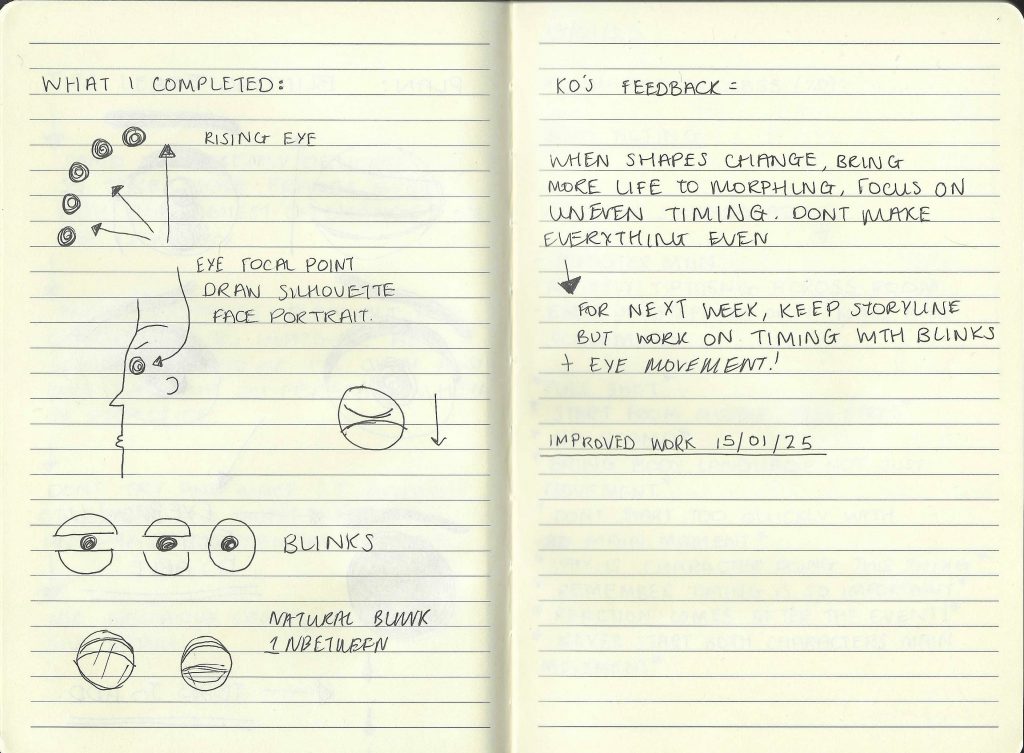 WHAT I COMPLETED:
RISING EYE
EYE FOCAL POINT
DRAW SILHOUETTE
FACE PORTRAIT.
BLINKS
NATURAL BLINK
INBETWEEN
KO'S FEEDBACK =
WHEN SHAPES CHANGE, BRING
MORE LIFE TO MORPHING, FOCUS ON
UNEVEN TIMING. DONT MAKE
EVERYTHING EVEN
FOR NEXT WEEK, KEEP STORYLINE
BUT WORK ON TIMING WITH BLINKS
+ EYE MOVEMENT!
IMPROVED WORK 15/01/25